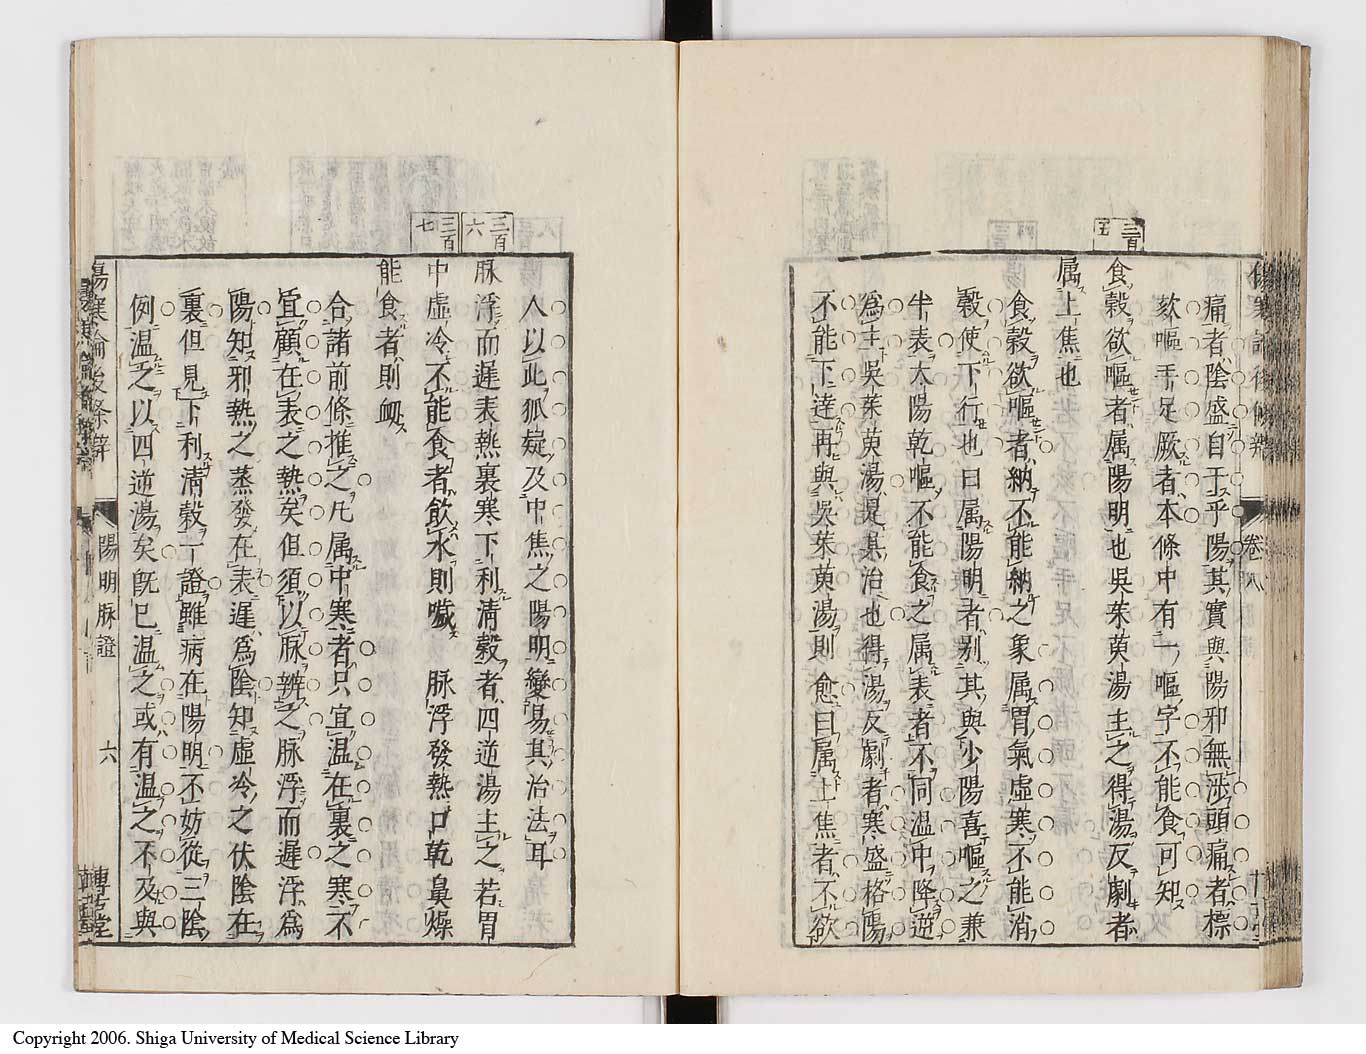 三百五
痛者陰盛自于乎陽其實與陽邪無涉頭痛者標
欬嘔手足厥者本條中有一嘔字不能食可知
食穀欲嘔者属陽明也吳茱萸湯主之得湯反劇者
属上焦也
食穀欲嘔者納不能納之象属胃氣虚寒不能消
穀使下行也曰属陽明者别其與少陽喜嘔之兼
半表太陽乾嘔不能食之属表者不同温中降逆
為主吳茱萸湯是其治也得湯反劇者寒盛格陽
不能下達再與吳茱萸湯則愈曰属上焦者不欲
三百六
三百七
人以此狐疑及中焦之陽明變易其治法耳
脉浮而遲表熱裏寒下利清穀者四逆湯主之若胃
中虚冷不能食者飲水則噦 脉浮發熱口乾鼻燥
能食者則衂
合諸前條推之凡属中寒者只宜温在裏之寒不
宜顧在表之熱矣但須以脉辨之脉浮而遲浮為
陽知邪熱之蒸發在表遲為陰知虚冷之伏陰在
裏但見下利清穀一證雖病在陽明不妨從三陰
例温之以四逆湯矣既已温之或有温之不及與
陽明脉證
六
卷八
Copyright 2006. Shiga University of Medical Science Library